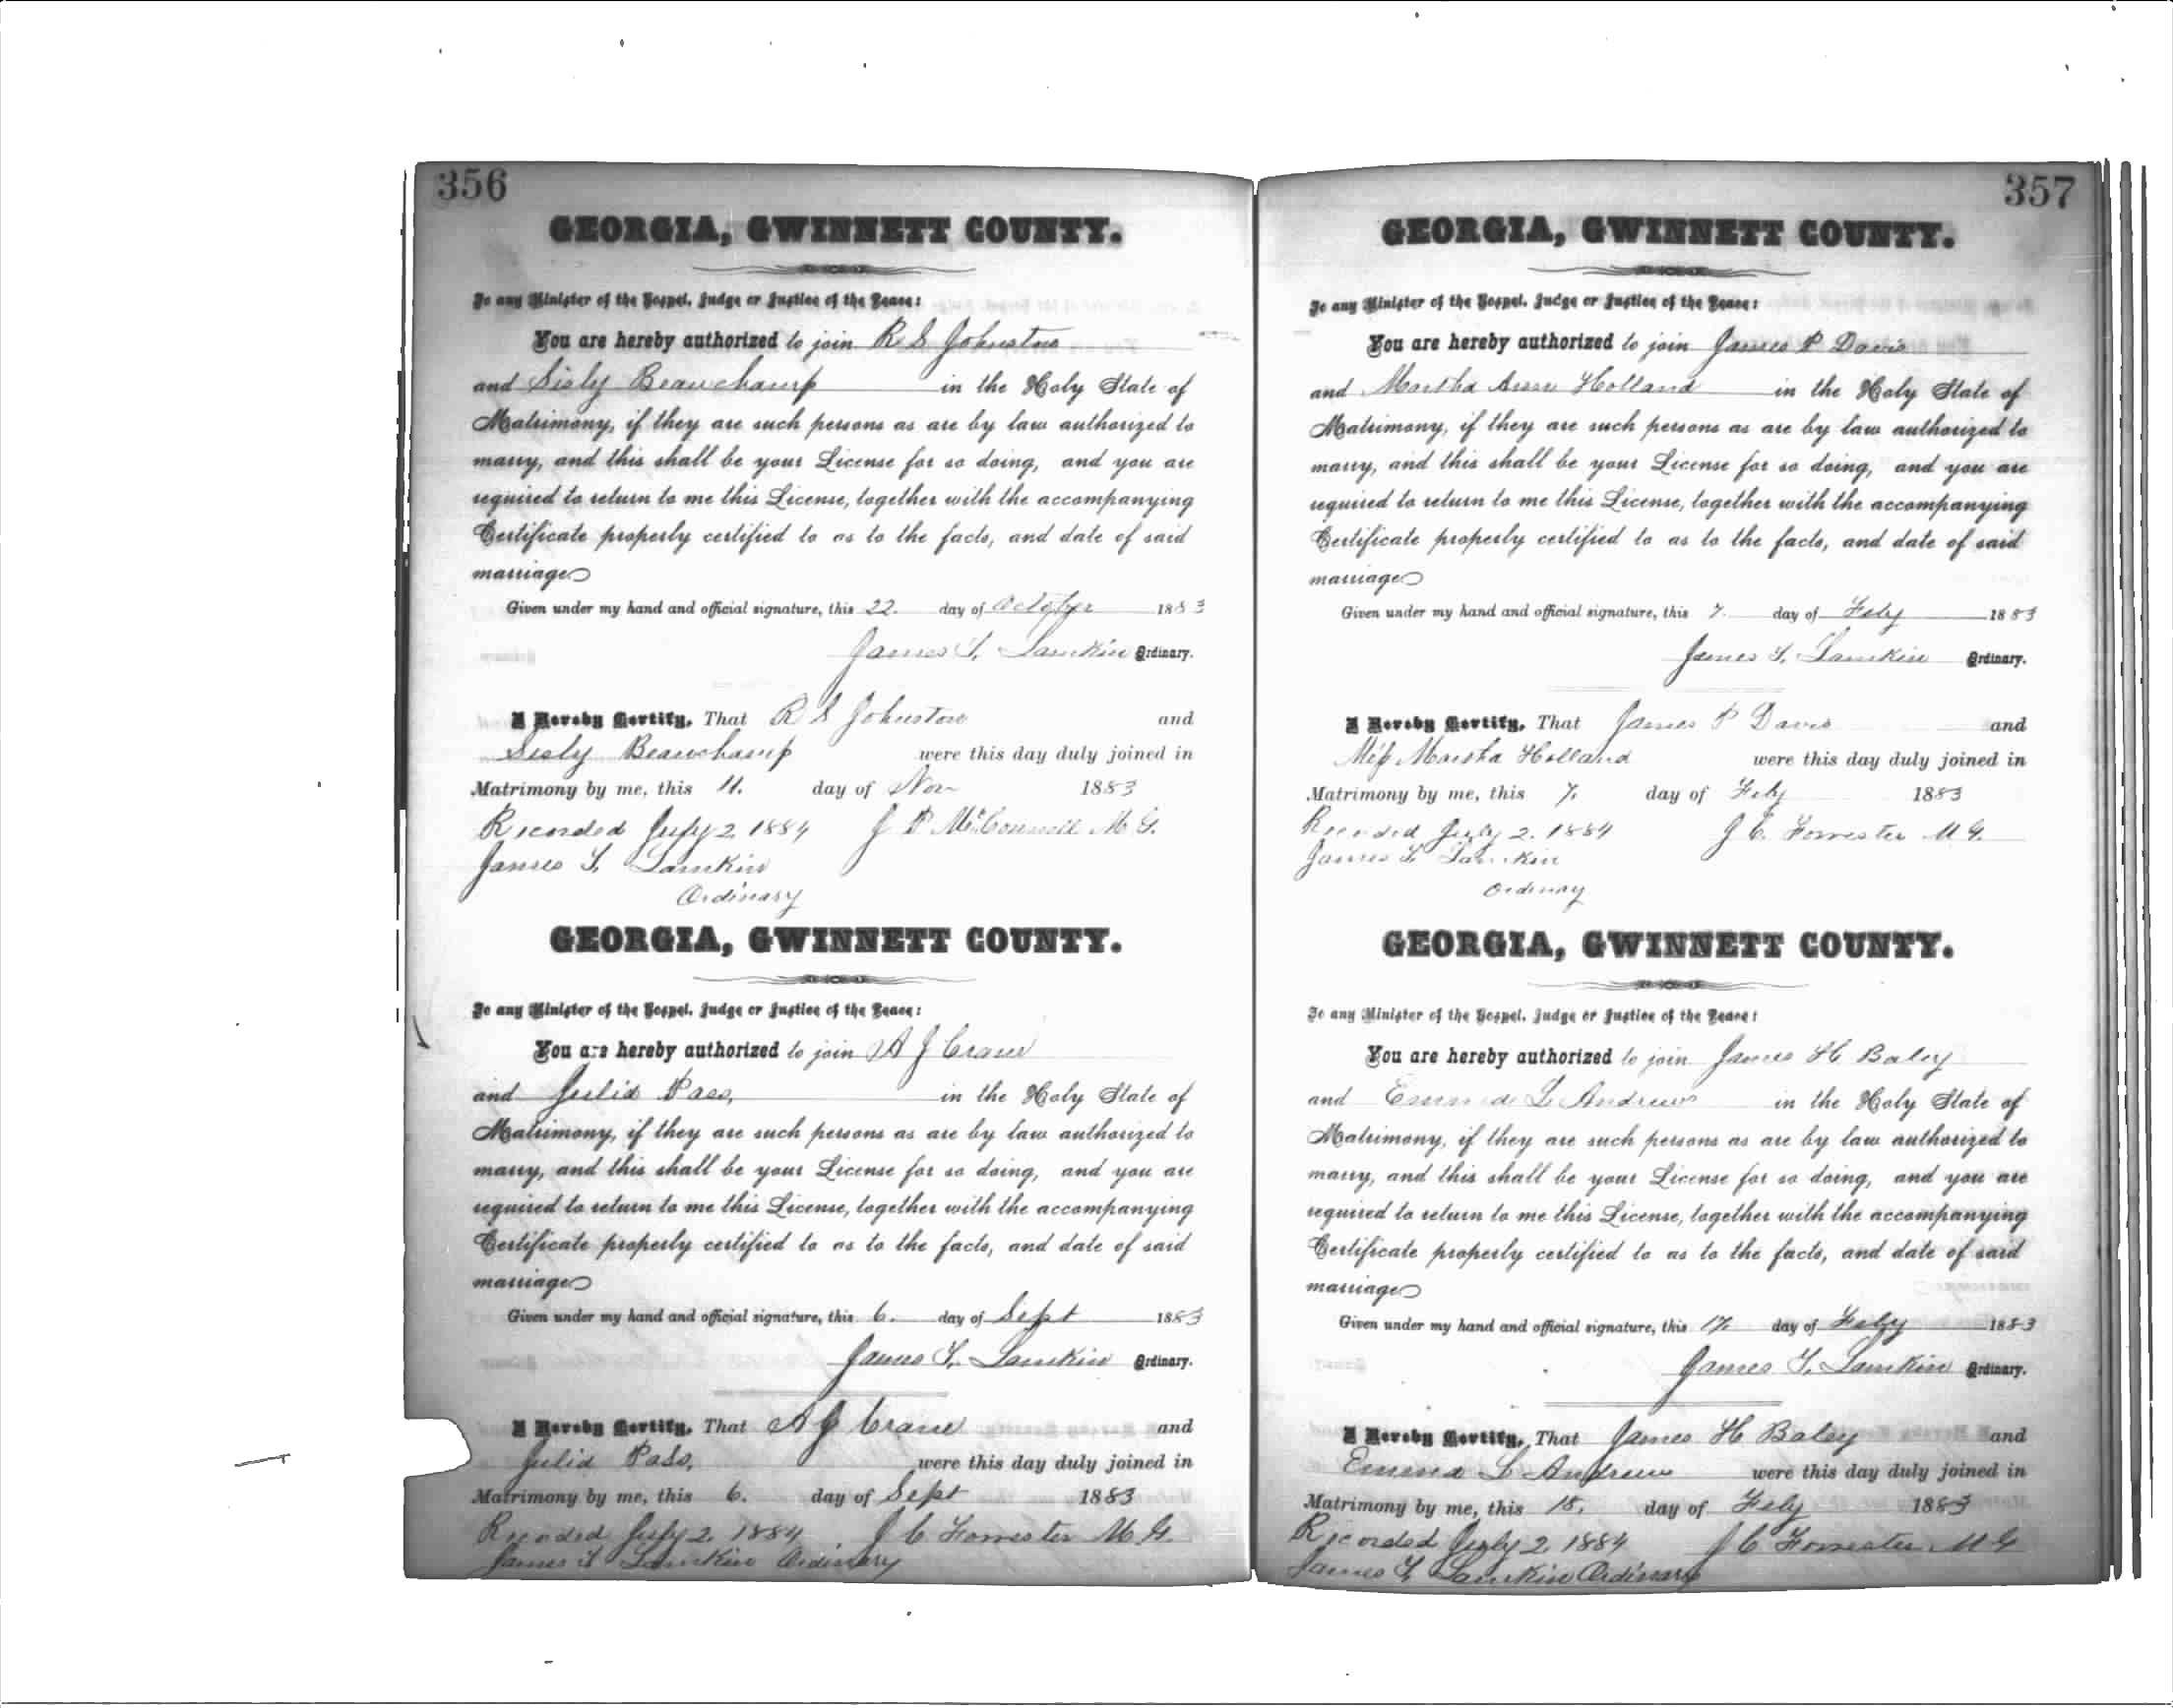 356
GEORGIA, GWINNETT COUNTY.
To any Minister of the Gospel, Judge or Justice of the Peace:
You are hereby authorized to join R S Johnston
and Sisly Beauchamp in the Holy State of
Matrimony, if they are such persons as are by law authorized to
marry, and this shall be your License for so doing, and you are
required to return to me this License, together with the accompanying
Certificate properly certified to as to the facts, and date of said
marriage
Given under my hand and official signature, this 22. day of October 1883
James T. Lamkin Ordinary.
I Hereby Certify, That R S Johnston and
Sisly Beauchamp were this day duly joined in
Matrimony by me, this 11. day of Nov 1883
Recorded July 2 1884 J P McConnell M G.
James T. Lamkin
Ordinary
GEORGIA, GWINNETT COUNTY.
To any Minister of the Gospel, Judge or Justice of the Peace:
You are hereby authorized to join A J Crane
and Julia Pass, in the Holy State of
Matrimony, if they are such persons as are by law authorized to
marry, and this shall be your License for so doing, and you are
required to return to me this License, together with the accompanying
Certificate properly certified to as to the facts, and date of said
marriage
Given under my hand and official signature, this 6. day of Sept 1883
James T. Lamkin Ordinary.
I Hereby Certify, That A J Crane and
Julia Pass, were this day duly joined in
Matrimony by me, this 6. day of Sept 1883
Recorded July 2. 1884 J C Forrester M G.
James T Lamkin Ordinary
357
GEORGIA, GWINNETT COUNTY.
To any Minister of the Gospel, Judge or Justice of the Peace:
You are hereby authorized to join James P Davis
and Martha Ann Holland in the Holy State of
Matrimony, if they are such persons as are by law authorized to
marry, and this shall be your License for so doing, and you are
required to return to me this License, together with the accompanying
Certificate properly certified to as to the facts, and date of said
marriage
Given under my hand and official signature, this 7. day of Feby 1883
James T. Lamkin Ordinary.
I Hereby Certify, That James P Davis and
Miss Martha Holland were this day duly joined in
Matrimony by me, this 7. day of Feby 1883
Recorded July 2. 1884 J C Forrester M G.
James T Lamkin
Ordinary
GEORGIA, GWINNETT COUNTY.
To any Minister of the Gospel, Judge or Justice of the Peace:
You are hereby authorized to join James H Baley
and Emma L Andrews in the Holy State of
Matrimony, if they are such persons as are by law authorized to
marry, and this shall be your License for so doing, and you are
required to return to me this License, together with the accompanying
Certificate properly certified to as to the facts, and date of said
marriage
Given under my hand and official signature, this 17. day of Feby 1883
James T. Lamkin Ordinary.
I Hereby Certify, That James H Baley and
Emma L Andrews were this day duly joined in
Matrimony by me, this 18. day of Feby 1883
Recorded July 2. 1884 J C Forrester M G
James T. Lamkin Ordinary